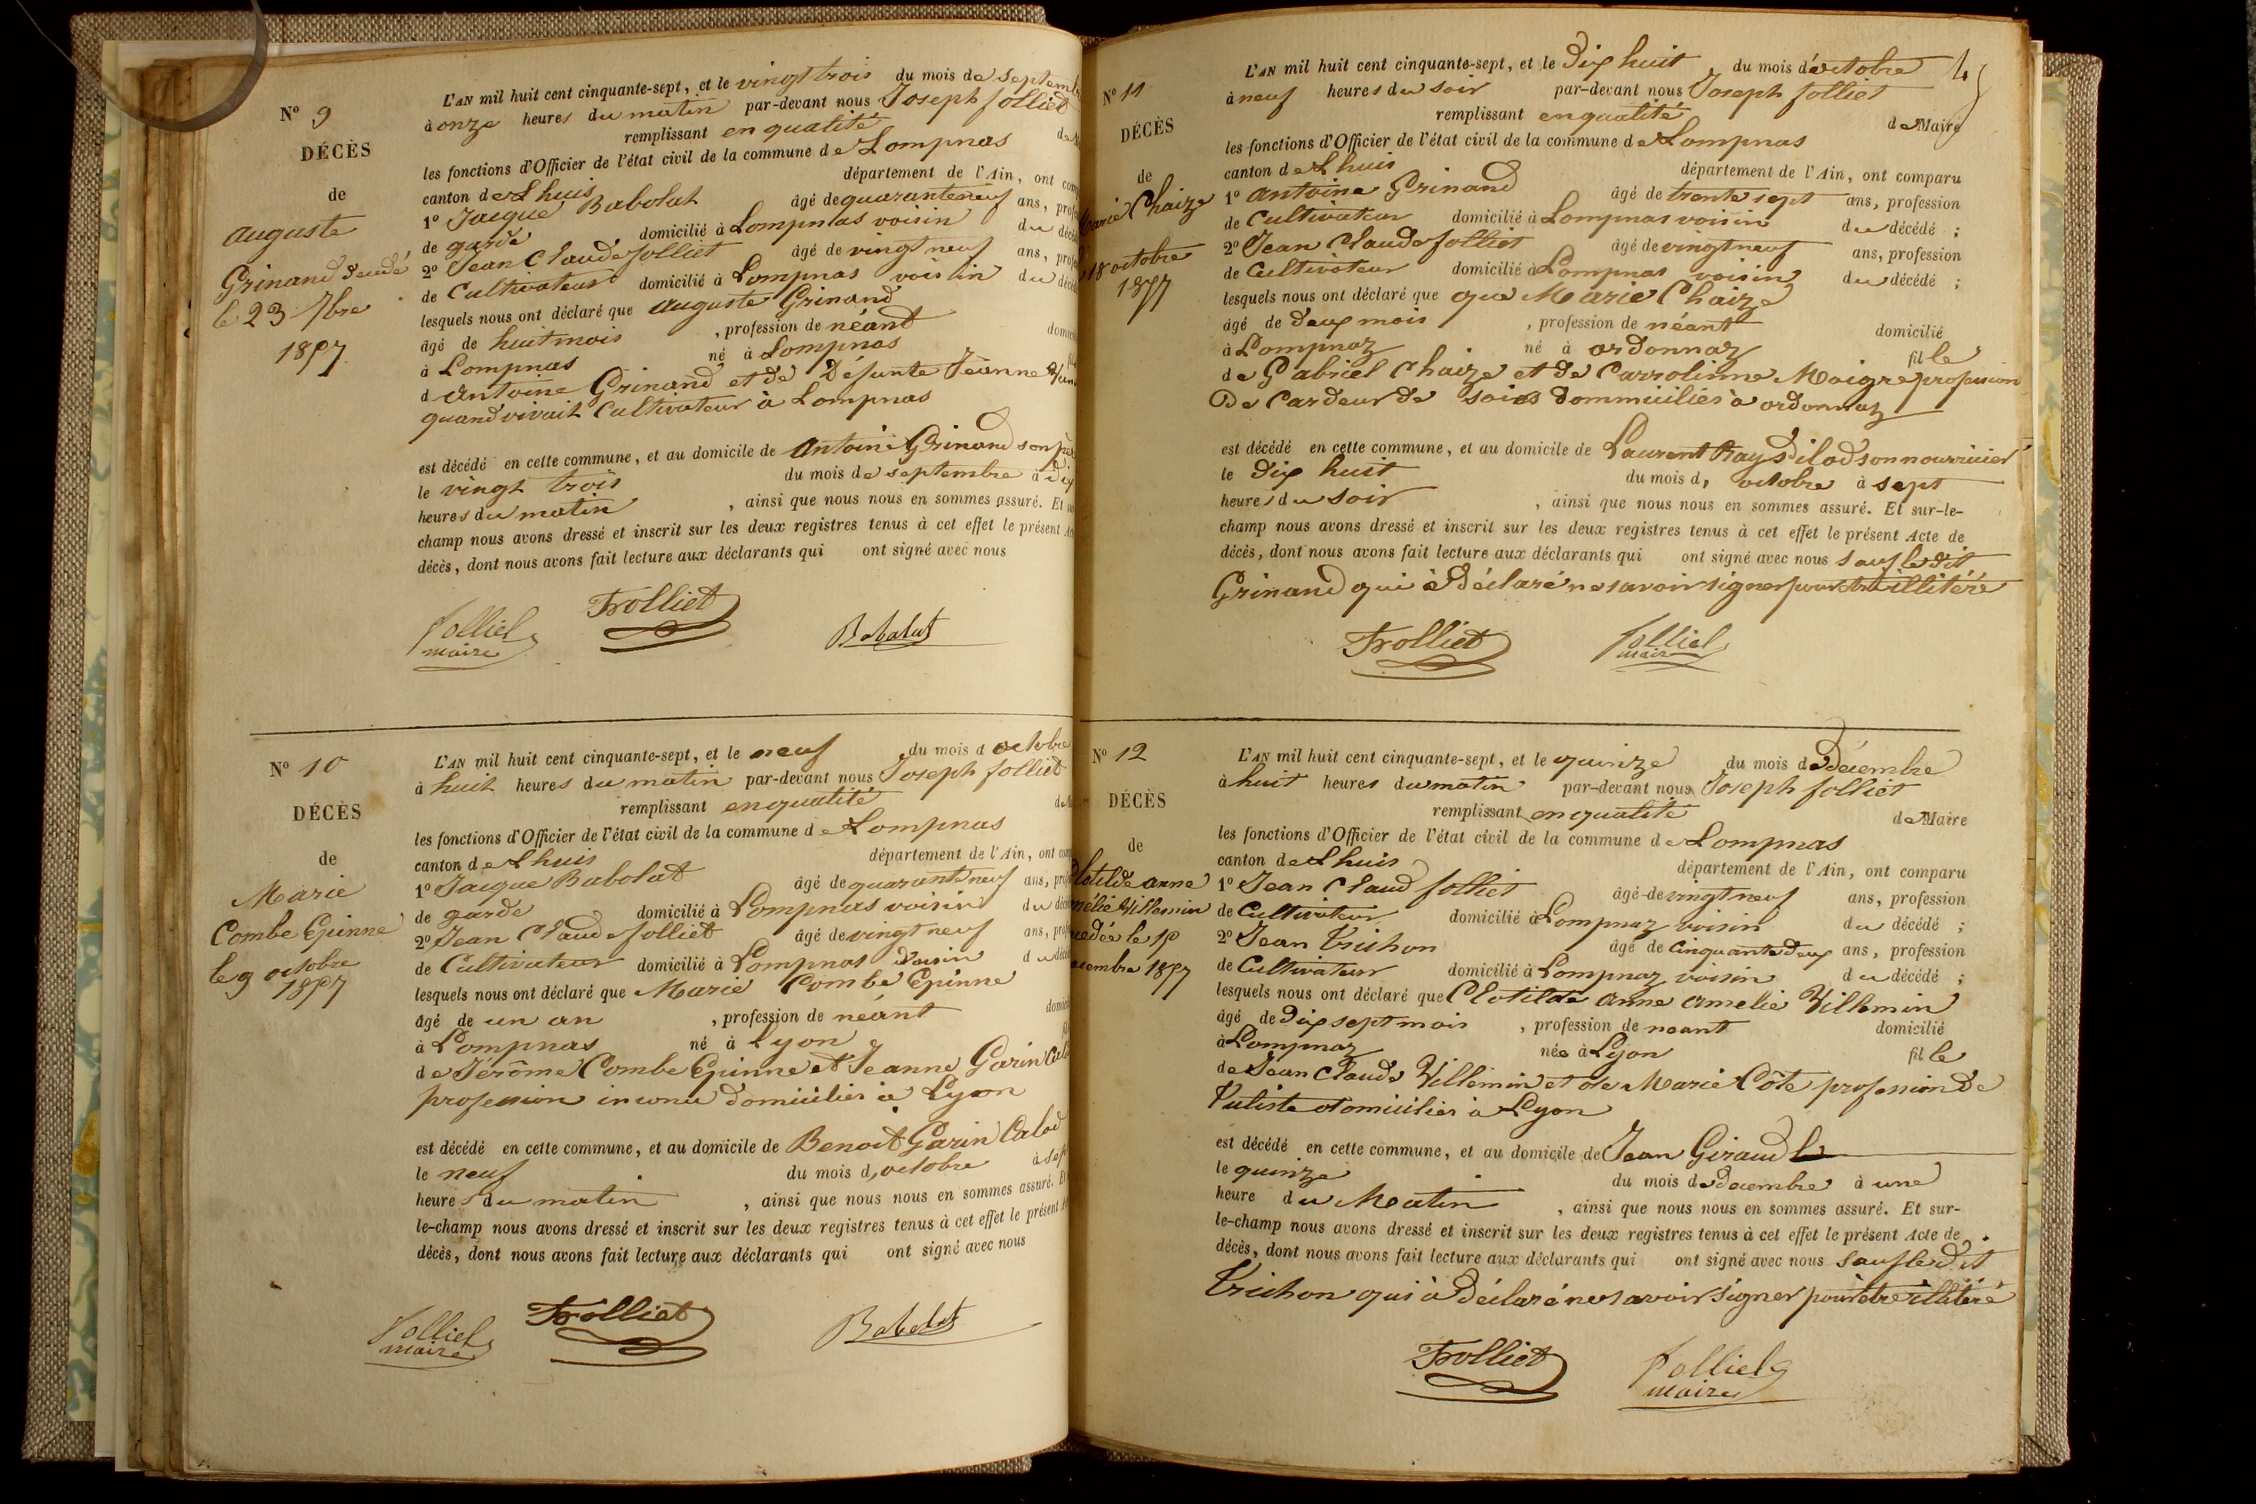 N° 9
DÉCÈS
de
auguste
Grinand
le 23 7bre
1857
L'AN mil huit cent cinquante-sept, et le vingt trois du mois de septemb
à onze heures du matin par-devant nous Joseph Jolliet
remplissant en qualité de
les fonctions d'Officier de l'état civil de la commune de Lompnas
canton de Lhuis département de l'Ain, ont com
1° Jacque Babolat âgé de quaranteneuf ans, profe
de garde domicilié à Lompnas voisin du décé
2° Jean Claude Jolliet âgé de vingt neuf ans, profe
de Cultivateur domicilié à Lompnas voisin du décé
lesquels nous ont déclaré que auguste Grinand
âgé de huit mois , profession de néant domici
à Lompnas né à Lompnas fil
d antoine Grinand et de Défunte Jeanne
quand vivait Cultivateur à Lompnas
est décédé en cette commune, et au domicile de antoine Grinand son pè
le vingt trois du mois de septembre à dix
heures du matin , ainsi que nous nous en sommes assuré. Et
champ nous avons dressé et inscrit sur les deux registres tenus à cet effet le présent Ac
décès, dont nous avons fait lecture aux déclarants qui ont signé avec nous
Jolliet
maire
Trolliet
Babolat
N° 10
DÉCÈS
de
Marie
Combe Epinne
le 9 octobre
1857
L'AN mil huit cent cinquante-sept, et le neuf du mois d octobre
à huit heures du matin par-devant nous Joseph Jolliet
remplissant en qualité de
les fonctions d'Officier de l'état civil de la commune de Lompnas
canton de Lhuis département de l'Ain, ont com
1° Jacque Babolat âgé de quarante neuf ans, prof
de garde domicilié à Lompnas voisin du décé
2° Jean Claude Jolliet âgé de vingt neuf ans, prof
de Cultivateur domicilié à Lompnas voisin du décé
lesquels nous ont déclaré que Marie Combe Epinne
âgé de un an , profession de néant domici
à Lompnas né à Lyon fil
de Jérôme Combe Epinne et Jeanne Garin
profession inconue domiciliés à Lyon
est décédé en cette commune, et au domicile de Benoit Garin Calod
le neuf du mois d octobre à sept
heures du matin , ainsi que nous nous en sommes assuré. Et
le-champ nous avons dressé et inscrit sur les deux registres tenus à cet effet le présent
décès, dont nous avons fait lecture aux déclarants qui ont signé avec nous
Jolliet
maire
Trolliet
Babolat
N° 11
DÉCÈS
de
Marie Chaize
18 octobre
1857
L'AN mil huit cent cinquante-sept, et le Dix huit du mois d'octobre
à neuf heures du soir par-devant nous Joseph Jolliet
remplissant en qualité de Maire
les fonctions d'Officier de l'état civil de la commune de Lompnas
canton de Lhuis département de l'Ain, ont comparu
1° antoine Grinand âgé de trente sept ans, profession
de Cultivateur domicilié à Lompnas voisin du décédé ;
2° Jean Claude Jolliet âgé de vingt neuf ans, profession
de Cultivateur domicilié à Lompnas voisin du décédé ;
lesquels nous ont déclaré que que Marie Chaize
âgé de Deux mois , profession de néant domicilié
à Lompnaz né à ordonnaz fille
de Gabriel Chaize et de Carrolinne Maigre profession
De Cardeur de soies dommiciliés à ordonnaz
est décédé en cette commune, et au domicile de Laurent Ray son nourricier
le Dix huit du mois d, octobre à sept
heures du soir , ainsi que nous nous en sommes assuré. Et sur-le-
champ nous avons dressé et inscrit sur les deux registres tenus à cet effet le présent Acte de
décès, dont nous avons fait lecture aux déclarants qui ont signé avec nous sauf le dit
Grinand qui à déclaré ne savoir signer pour être illitéré
Trolliet
Jolliet
maire
N° 12
DÉCÈS
de
Clotilde anne
amélie Villemin
le 15
décembre 1857
L'AN mil huit cent cinquante-sept, et le quinze du mois de Décembre
à huit heures du matin par-devant nous Joseph Jolliet
remplissant en qualité de Maire
les fonctions d'Officier de l'état civil de la commune de Lompnas
canton de Lhuis département de l'Ain, ont comparu
1° Jean Claud Jolliet âgé de vingt neuf ans, profession
de Cultivateur domicilié à Lompnaz voisin du décédé ;
2° Jean Trichon âgé de cinquante deux ans, profession
de Cultivateur domicilié à Lompnaz voisin du décédé ;
lesquels nous ont déclaré que Clotilde anne amelie Villemin
âgé de Dix sept mois , profession de neant domicilié
à Lompnaz née à Lyon fille
de Jean Claude Villemin et de Marie Côte profession de
domiciliés à Lyon
est décédé en cette commune, et au domicile de Jean Giraud
le quinze du mois de Decembre à une
heure du Matin , ainsi que nous nous en sommes assuré. Et sur-
le-champ nous avons dressé et inscrit sur les deux registres tenus à cet effet le présent Acte de
décès, dont nous avons fait lecture aux déclarants qui ont signé avec nous sauf le dit
Trichon qui à déclaré ne savoir signer pour être illitéré
Trolliet
Jolliet
maire